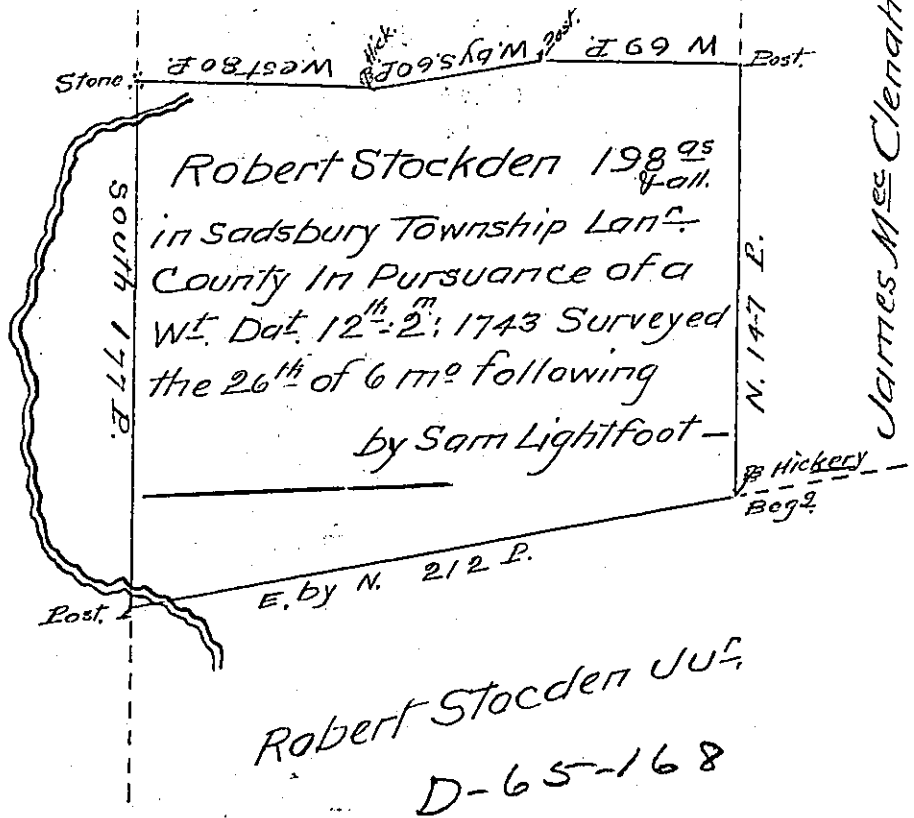 West 80 P.
Hick.
W. by S. 60 P.
Post.
W 69 P.
Stone
Post.
James Mcc Clenah
Robert Stockden 198 as
& all.
in Sadsbury Township Lanr.
County In Pursuance of a
Wt. Dat. 12th: 2m: 1743 Surveyed
the 26th of 6 mo following
by Sam Lightfoot —
South 177 P.
N. 147 P.
B Hickery
Begg.
E. by N. 212 P.
Post.
Robert Stocden Jur.
D-65-168